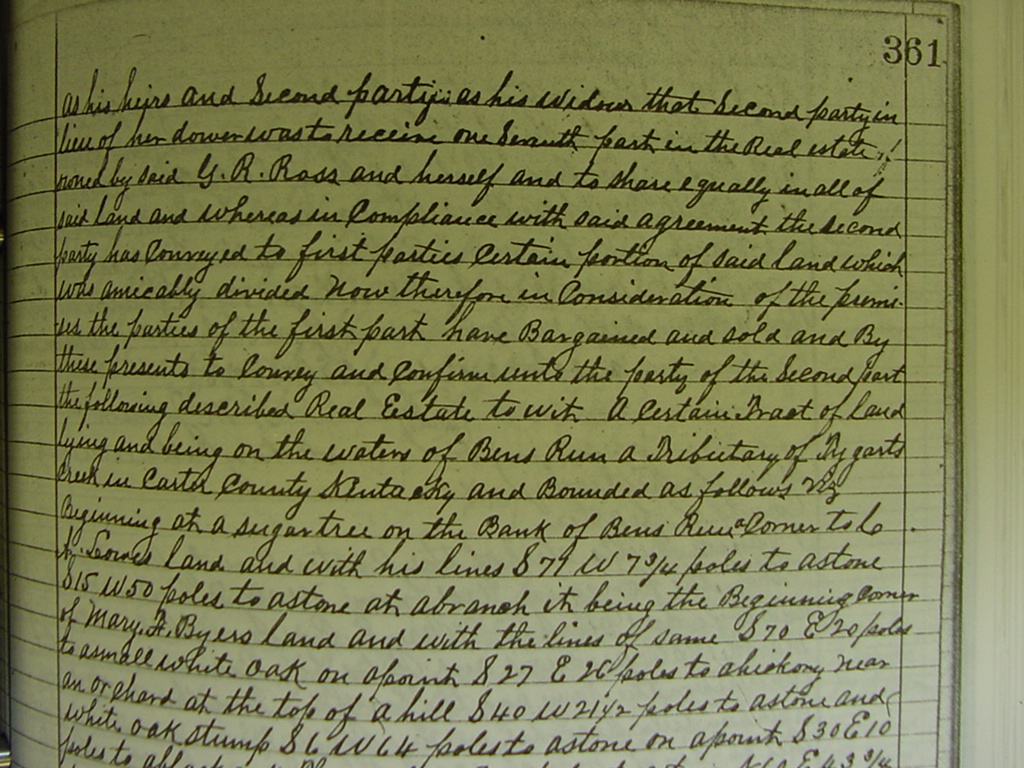 361
as his heirs and Second party as his widow that Second party in
lieu of her dower was to receive one Seventh part in the Real estate
owned by said G. R. Ross and herself and to share equally in all of
said land and whereas in Compliance with said agreement the second
party has Conveyed to first parties Certain portion of said land which
was amicably divided Now therefore in Consideration of the premi-
ses the parties of the first part have Bargained and sold and By
these presents to Convey and Confirm unto the party of the Second part
the following described Real Eestate to wit A Certain Tract of land
lying and being on the waters of Bens Run a Tributary of Tygarts
Creek in Carter County Kentucky and Bounded as follows viz
Beginning at a sugar tree on the Bank of Bens Run a Corner to
land and with his lines S 79 W 7 3/4 poles to a stone
S 15 W 50 poles to a stone at a branch it being the Beginning Corner
of Mary A. Byers land and with the lines of same S 70 E 20 poles
to a small white oak on a point S 27 E 26 poles to a hickory near
an orchard at the top of a hill S 40 W 21 1/2 poles to a stone and
white oak stump S 6 W 64 poles to a stone on a point S 30 E 10
poles to a 43 3/4